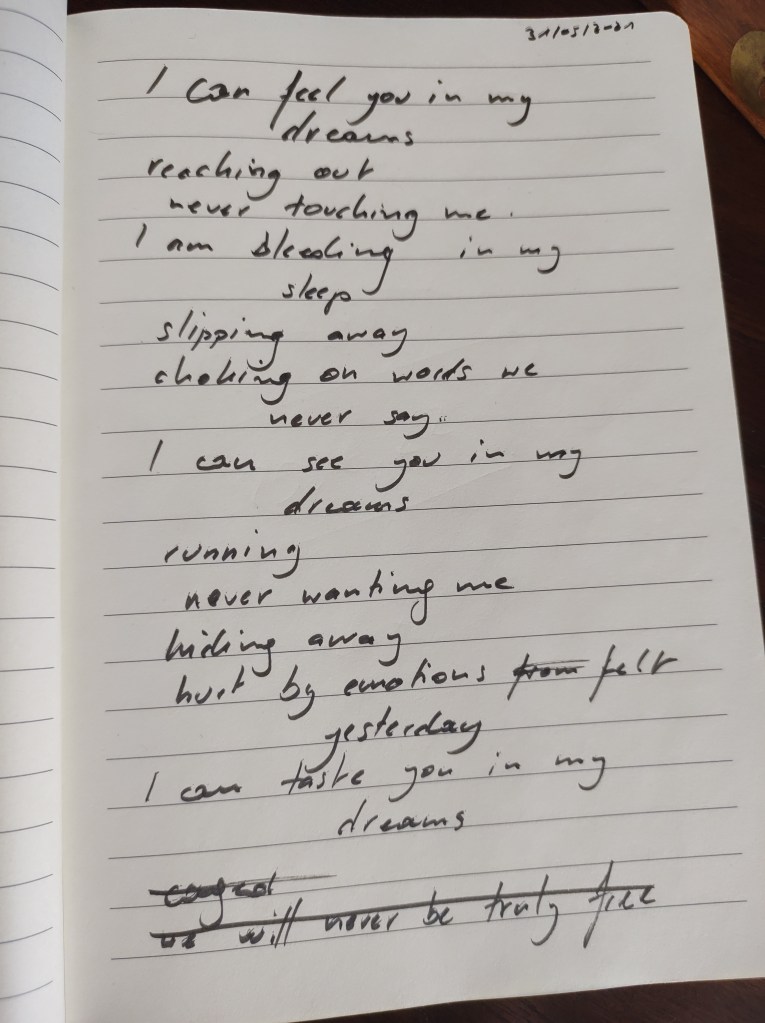 31/05/2021
I can feel you in my
dreams
reaching out
never touching me.
I am bleeding in my
sleep
slipping away
choking on words we
never say..
I can see you in my
dreams
running
never wanting me
hiding away
hurt by emotions from felt
yesterday
I can taste you in my
dreams
caged
we will never be truly free